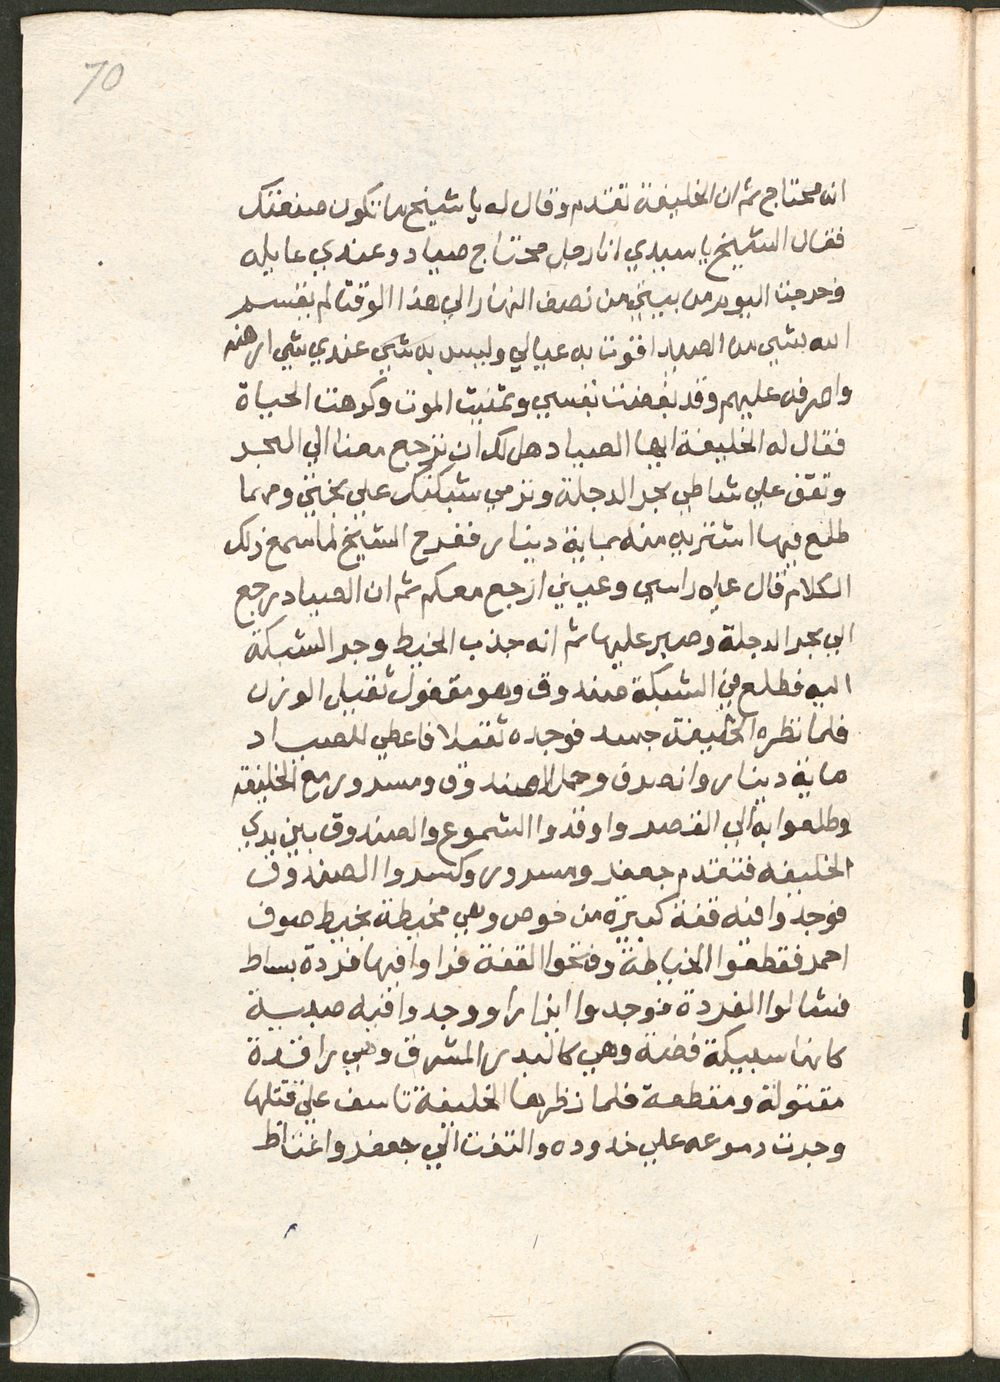 70
انه محتاج ثم ان الخليفة تقدم وقال له يا شيخ ما تكون صنعتك
فقال الشيخ يا سيدي انا رجل محتاج صياد وعندي عايله
وخرجت اليوم من بيتي من نصف النهار الي هذا الوقت لم يقسم
الله بشي من الصيد اقوت به عيالي وليس به شي عندي شي ارهنه
واصرفه عليهم وقد بغضت نفسي وتمنيت الموت وكرهت الحياة
فقال له الخليفة ايها الصياد هل لك ان ترجع معنا الي البحر
وتقف علي شاطي بحر الدجلة وترمي شبكتك علي بختي ومهما
طلع فيها اشتريه منك بماية دينار ففرح الشيخ لما سمع ذلك
الكلام قال علي راسي وعيني ارجع معكم ثم ان الصياد رجع
الي بحر الدجلة وصبر عليها ثم انه جذب الخيط وجر الشبكة
اليه فطلع في الشبكة صندوق وهو مقفول ثقيل الوزن
فلما نظره الخليفة جسه فوجده ثقيلا فاعطي للصياد
ماية دينار وانصرف وحمل الصندوق ومسرور مع الخليفه
وطلعوا به الي القصر واوقدوا الشموع والصندوق بين يدي
الخليفه فتقدم جعفر ومسرور وكسروا الصندوق
فوجدوا فيه قفة كبيرة من خوص وهي مخيطة بخيط صوف
احمر فقطعوا الخياطة وفتحوا القفة فراوا فيها فردة بساط
فشالوا الفردة فوجدوا ايزارا ووجدوا فيه صبية
كانها سبيكة فضة وهي كالبدر المشرق وهي راقدة
مقتولة ومقطعة فلما نظرها الخليفة تاسف علي قتلها
وجرت دموعه علي خدوده والتفت الي جعفر واغتاظ